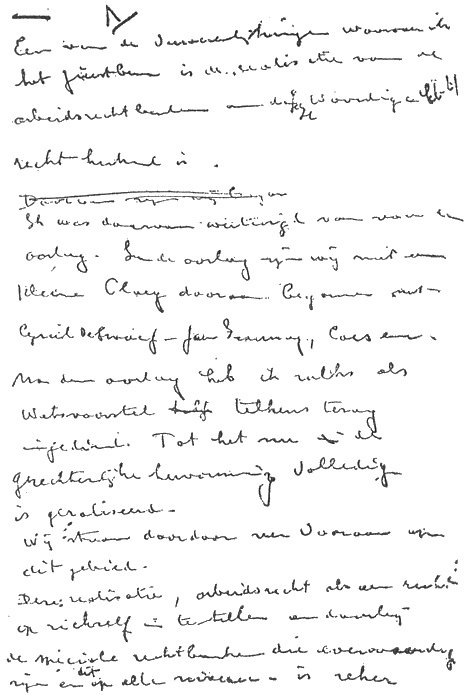 Een van de verwezenlijkingen waarvan ik
het fierst ben is de realisatie van de
arbeidsrechtbanken omdat
recht is.
Ik was daarvan overtuigd van voor de
oorlog. In de oorlog zijn wij met een
kleine ploeg daaraan begonnen met
Cyriel De Swaef - Jan
Na den oorlog heb ik zulks als
Wetsvoorstel telkens terug
ingediend. Tot het nu in de
gerechterlijke hervorming volledig
is gerealiseerd.
Wij staan daardoor ver vooraan op
dit gebied.
Deze realisatie, arbeidsrecht als een recht
op zichzelf in te stellen en daarbij
de speciale rechtbanken die evenwaardig
zijn en dit op alle niveaus - is zeker